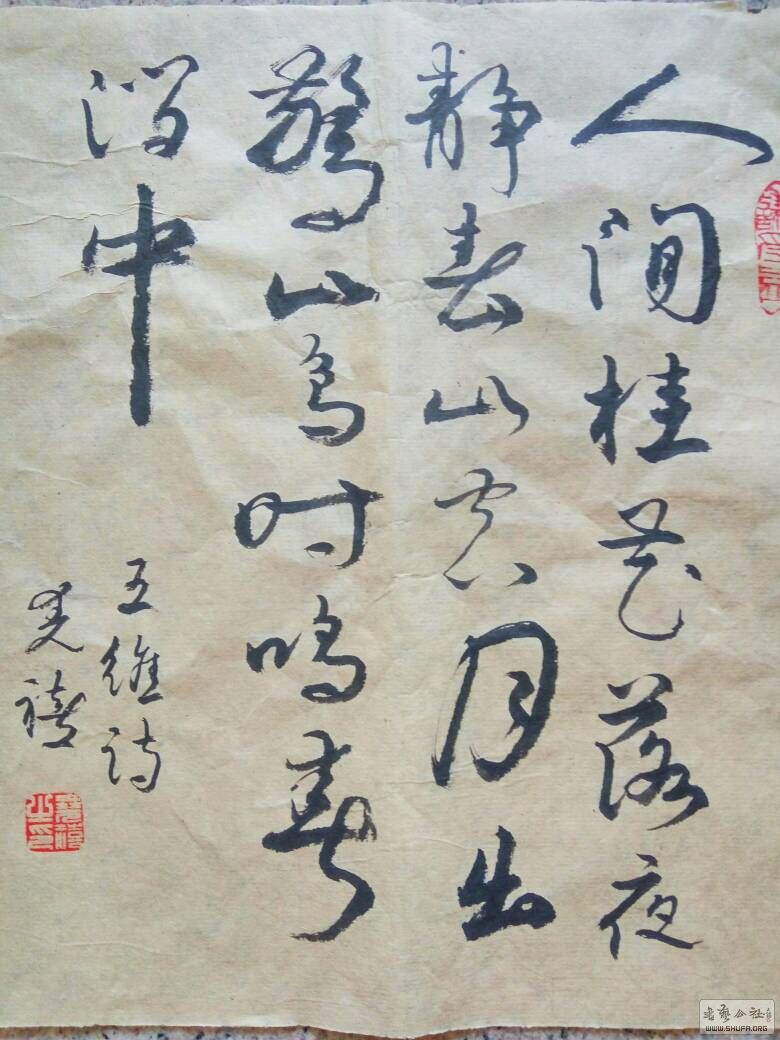 人间桂花落夜
静春山空月出
驚山鸟时鸣春
涧中
王維诗
書藝公社
WWW.SHUFA.ORG